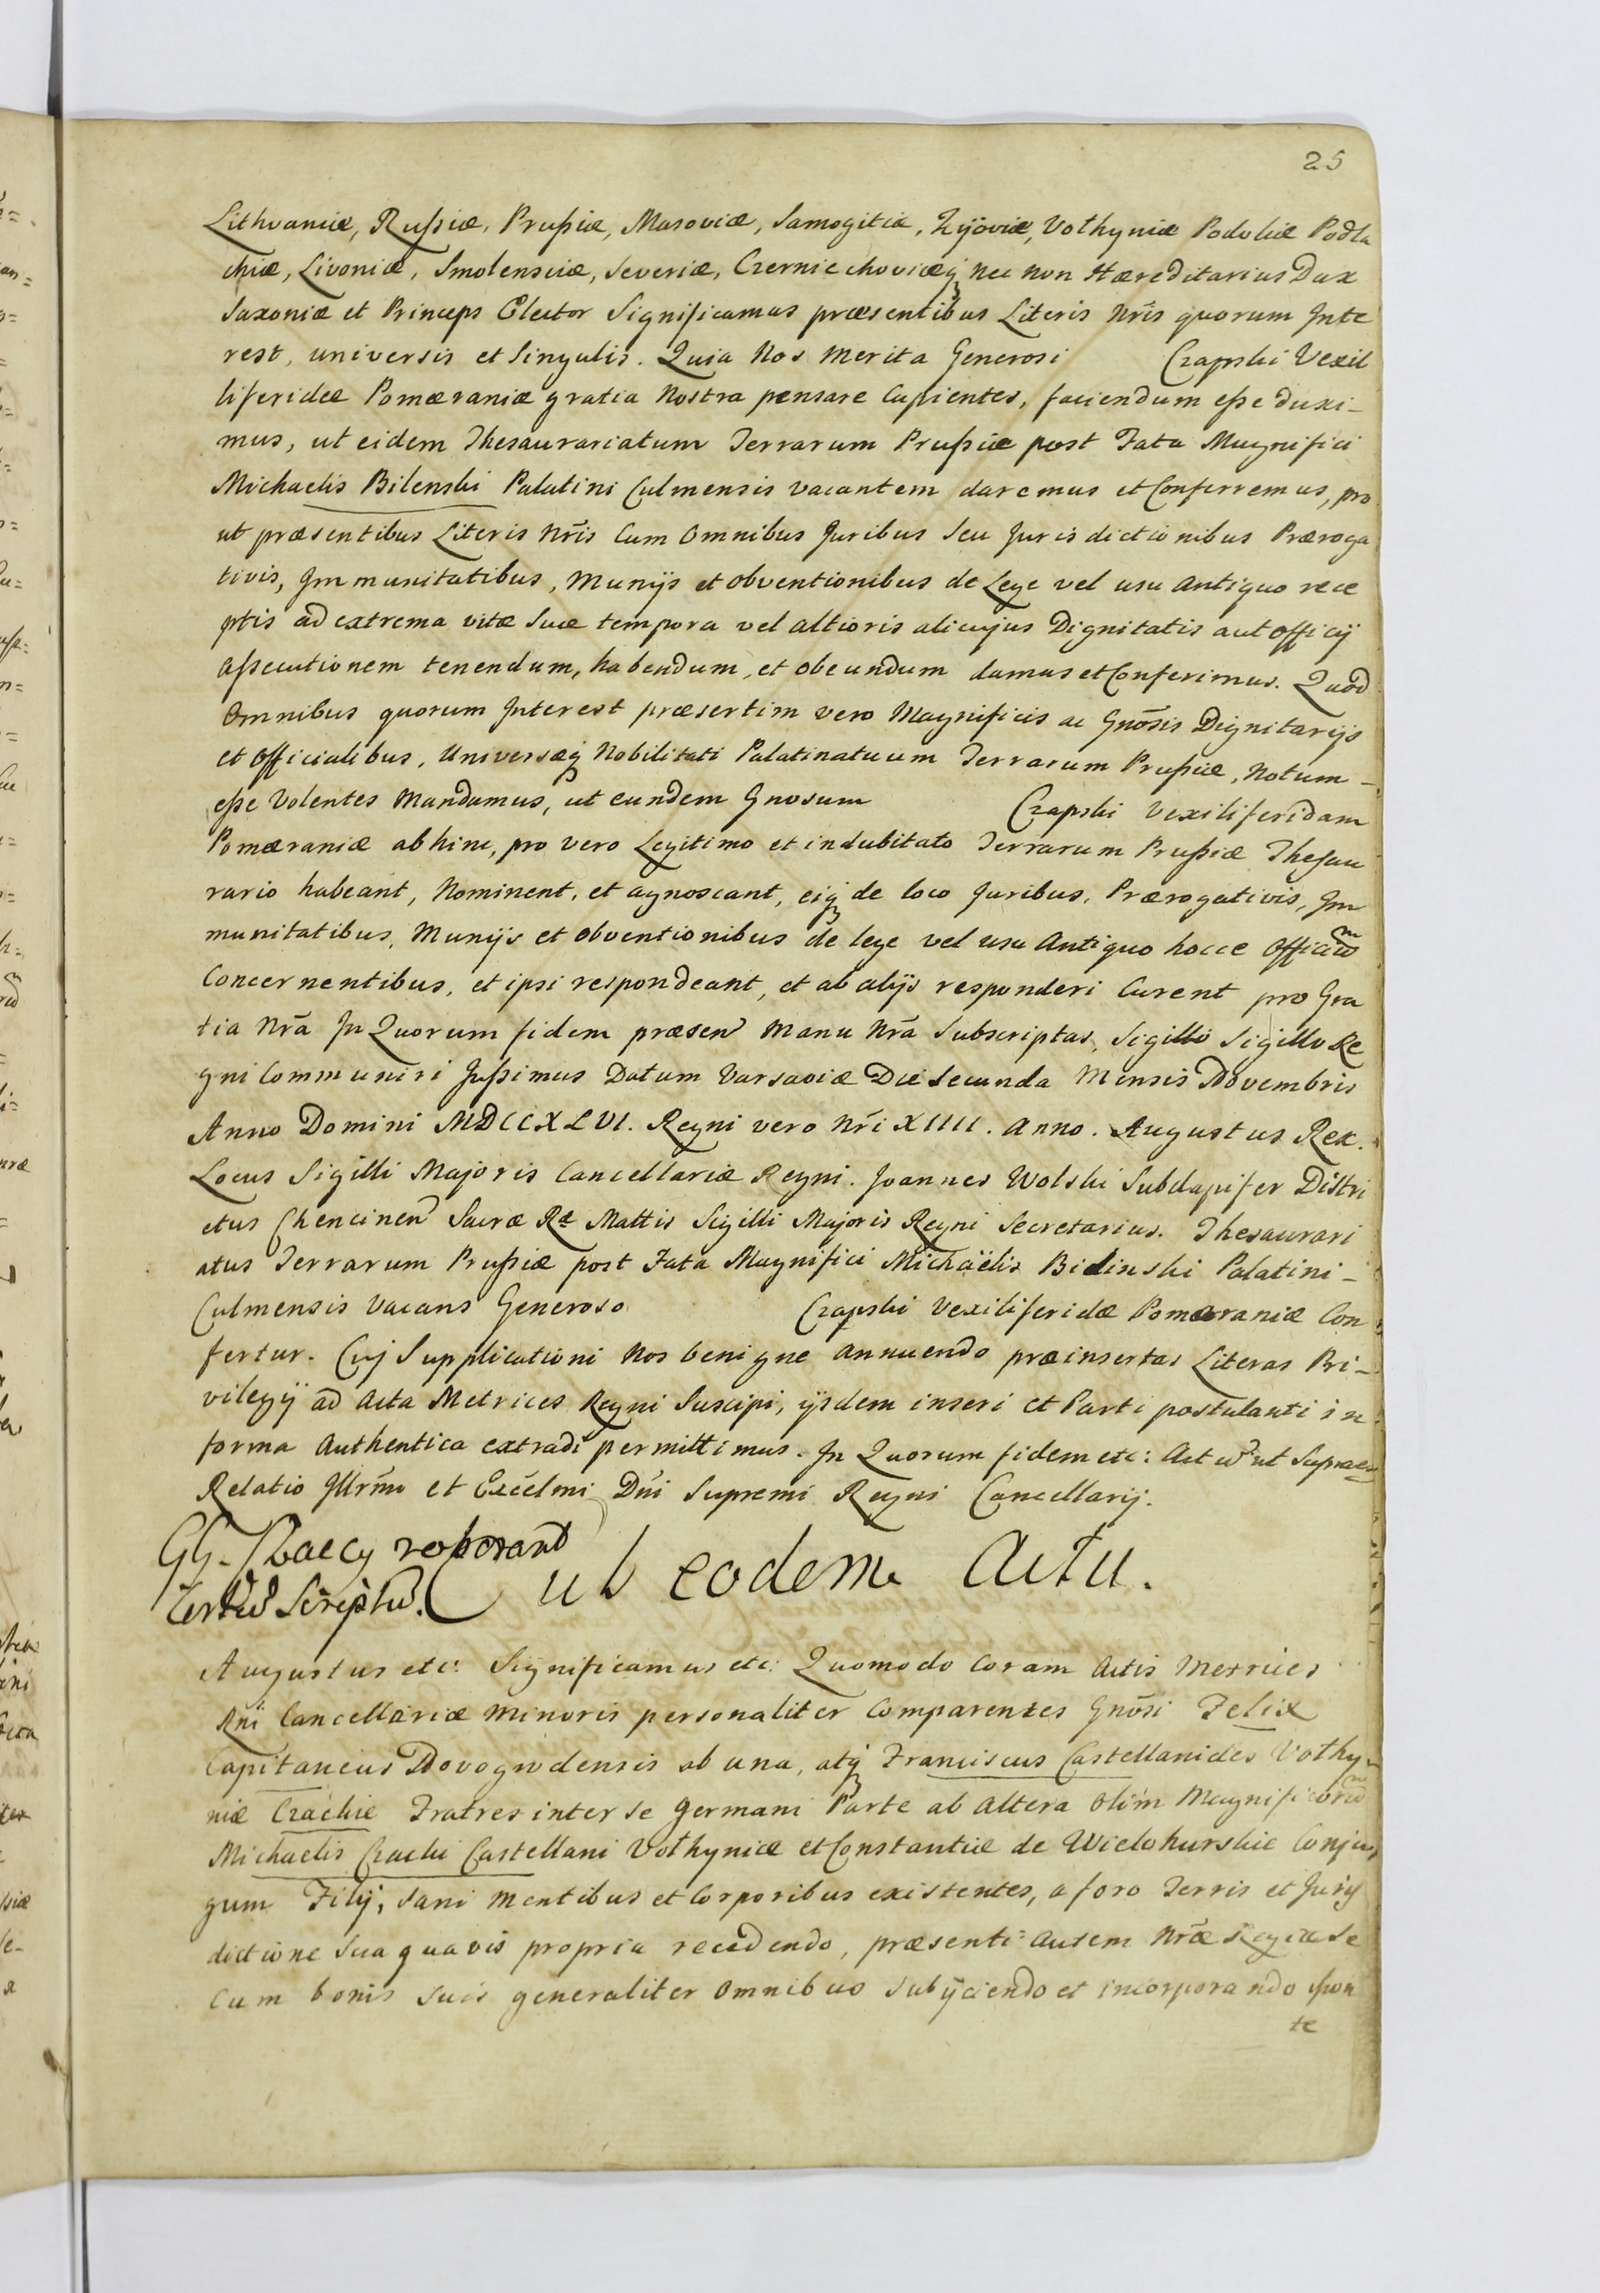 25
Lithvaniæ, Rußiæ, Prußiæ, Masoviæ, Samogitiæ, Kijoviæ, Volhyniæ Podoliæ Podla
chiæ, Livoniæ, Smolensciæ, Severiæ, Czerniechoviæq nec non Hæreditarius Dux
Saxoniæ et Princeps Elector Significamus præsentibus Literis Nr̃is quorum Inte
rest, universis et Singulis. Quia Nos Merita Generosi Czapski Vexil
liferidæ Pomæraniæ gratia Nostra pensare Cupientes, faciendum eße duxi-
mus, ut eidem Thesaurariatum Terrarum Prußiæ post Fata Magnifici
Michaelis Bilenski Palatini Culmensis vacantem daremus et Conferremus, pro
ut præsentibus Literis Nr̃is Cum Omnibus Juribus Seu Jurisdictionibus Præroga
tivis, Immunitatibus, Munijs et obventionibus de Lege vel usu Antiquo rece
ptis ad extrema vitæ Suæ tempora vel altioris alicujus Dignitatis aut Officij
aßecutionem tenendum, habendum, et obeundum damus et Conferimus. Quod
Omnibus quorum Interest præsertim vero Magnificis ac Gnõsis Dignitarijs
et Officialibus, Universæq Nobilitati Palatinatuum Terrarum Prußiæ, Notum-
eße Volentes Mandamus, ut eundem Gnosum Czapski Vexiliferidam
Pomæraniæ abhinc, pro vero Legitimo et indubitato Terrarum Prußiæ Thesau
rario habeant, Nominent, et agnoscant, eiq de loco Juribus, Prærogativis, Im
munitatibus, Munijs et obventionibus de lege vel usu Antiquo hocce Officium
Concernentibus, et ipsi respondeant, et ab alijs responderi Curent pro Gra
tia Nr̃a In Quorum fidem præsen Manu Nr̃a Subscriptas, Sigillo Sigillo Re
gni Communiri Jußimus Datum Varsaviæ Die Secunda Mensis Novembris
Anno Domini MDCCXLVI. Regni vero Nr̃i XIIII. Anno. Augustus Rex.
Locus Sigilli Majoris Cancellariæ Regni. Joannes Wolski Subdapifer Distri
ctus Chencinen Sacræ Ræ Mattis Sigilli Majoris Regni Secretarius. Thesaurari
atus Terrarum Prußiæ post Fata Magnifici Michaëlis Bielinski Palatini-
Culmensis Vacans Generoso Czapski Vexiliferidæ Pomæraniæ Con
fertur. Cuj Supplicationi Nos benigne annuendo præinsertas Literas Pri-
vilegij ad Acta Metrices Regni Suscipi, ijsdem inseri et Parti postulanti in
forma Authentica extradi permittimus. In Quorum fidem etc: Act ut Supra
Relatio Illr̃mi et Excẽlmi Dñi Supremi Regni Cancellarij.
roborant
Scriptu.
Sub eodem Actu.
Augustus etc: Significamus etc: Quomodo Coram Actis Metrices
Rni Cancellariæ Minoris personaliter Comparentes Gnõsi Felix
Capitaneus Novogrodensis ab una, atq Franciscus Castellanides Volhy-
niæ Czackie Fratres inter Se Germani Parte ab Altera Olim Magnificorum
Michaelis Czacki Castellani Volhyniæ et Constantiæ de Wielohurskie Conju
gum Filij, Sani Mentibus et Corporibus existentes, a foro Terris et Juris
dictione Sua quavis propria recedendo, præsenti autem Nr̃æ Regiæ Se
Cum bonis Suis generaliter Omnibus Subijciendo et incorporando Spon
te